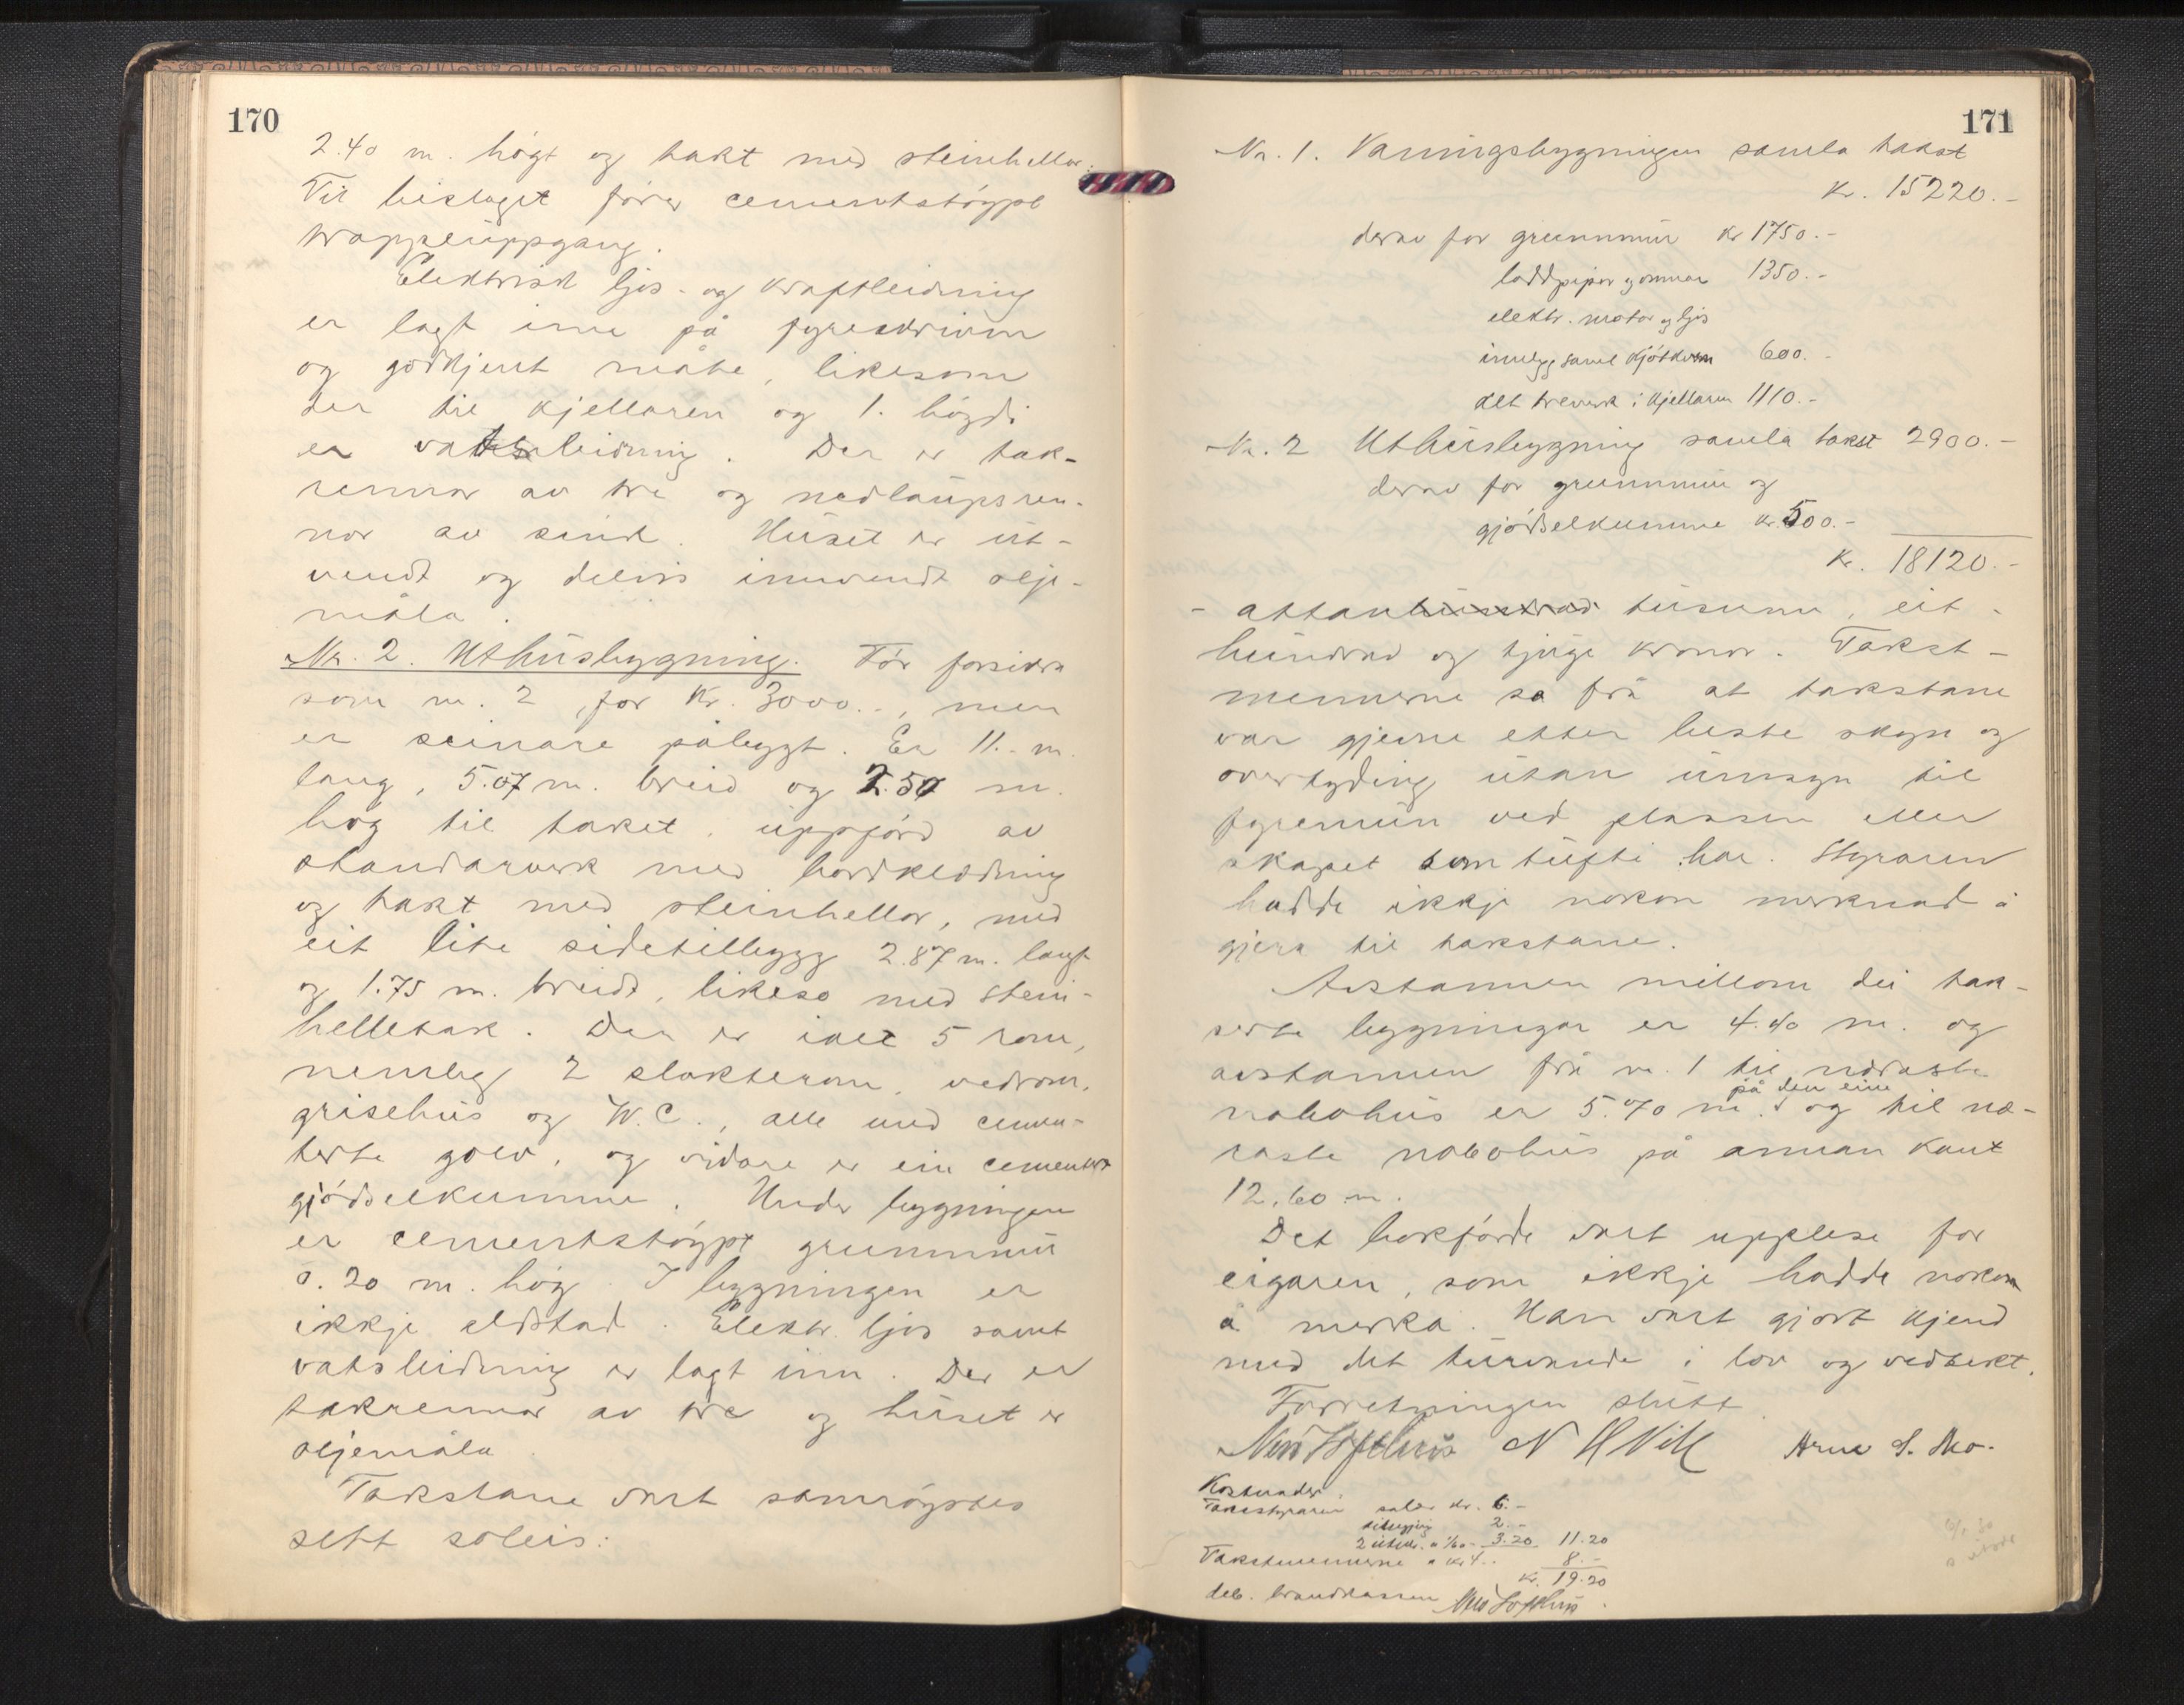 170
2.40 m. høgt og takt med steinhellor.
Til bislaget fører cementstøypt
trappeuppgang.
Elektrisk ljos- og kraftleidning
er lagt inn på fyreskriven
og godkjent måte, likesom
der til kjellaren og 1. høgd
er vatsleidning. Der er tak-
rennor av tre og nedlaupsren-
nor av sink. Huset er ut-
vendt og delvis innvendt olje-
måla.
Nr. 2. Uthusbygning. Før forsikra
som nr. 2, for kr. 3000.-, men
er seinare påbygt. Er 11.- m.
lang, 5.07 m. breid og 2.50 m.
høg til taket, uppførd av
standarverk med bordklædning
og takt med steinhellor, med
eit lite sidetillegg 2.87 m. langt
og 1.75 m. breidt, likeso med stein-
helletak. Der er ialt 5 rom,
nemleg 2 slakterom, vedrom,
grisehus og W.C., alle med cemen-
terte golv, og vidare er ein cementert
gjødselkumme. Under bygningen
er cementstøypt grunnmur
0.20 m. høg. I bygningen er
ikkje eldstad. Elektr. ljos samt
vatsleidning er lagt inn. Der er
takrennor av tre og huset er
oljemåla.
Takstane vart samrøystes
sett soleis:
171
Nr. 1. Vaningsbygningen samla takst
kr. 15220.-
derav for grunnmur kr 1750.-
loddpipor og omnar 1350.-
elektr. motor og ljos
innlegg samt kjøtkvern 600.-
alt treverk i kjellaren 1110.-
Nr. 2 Uthusbygning samla takst 2900.-
derav for grunnmur og
gjødselkumme kr. 500.-
Kr. 18120.-
- attan hundrad tusund, eit-
hundrad og tjuge kronor. Takst-
mennerne sa frå at takstane
var gjevne etter beste skyn og
overtyding utan umsyn til
fyremun ved plassen eller
skapet som tufti har. Styraren
hadde ikkje nokon merknad å
gjera til takstane.
Avstannen millom dei tak-
serte bygningar er 4.40 m. og
avstannen frå nr. 1 til næraste
på den eine
nabohus er 5.70 m. og til næ-
raste nabohus på annan kant
12.60 m.
Det bokførde vart upplese for
eigaren, som ikkje hadde nokon
å merka. Han vart gjort kjend
med det turvande i lov og vedtekt.
Forretningen slutt.
N H Vik Arne S. Mo.
Kostnader
Takststyraren salær kr. 6.-
2.-
2 a 1/60 - 3.20 11.20
Takstmennerne a kr 4.- 8.-
Kr. 19.20
deb. brandkassen